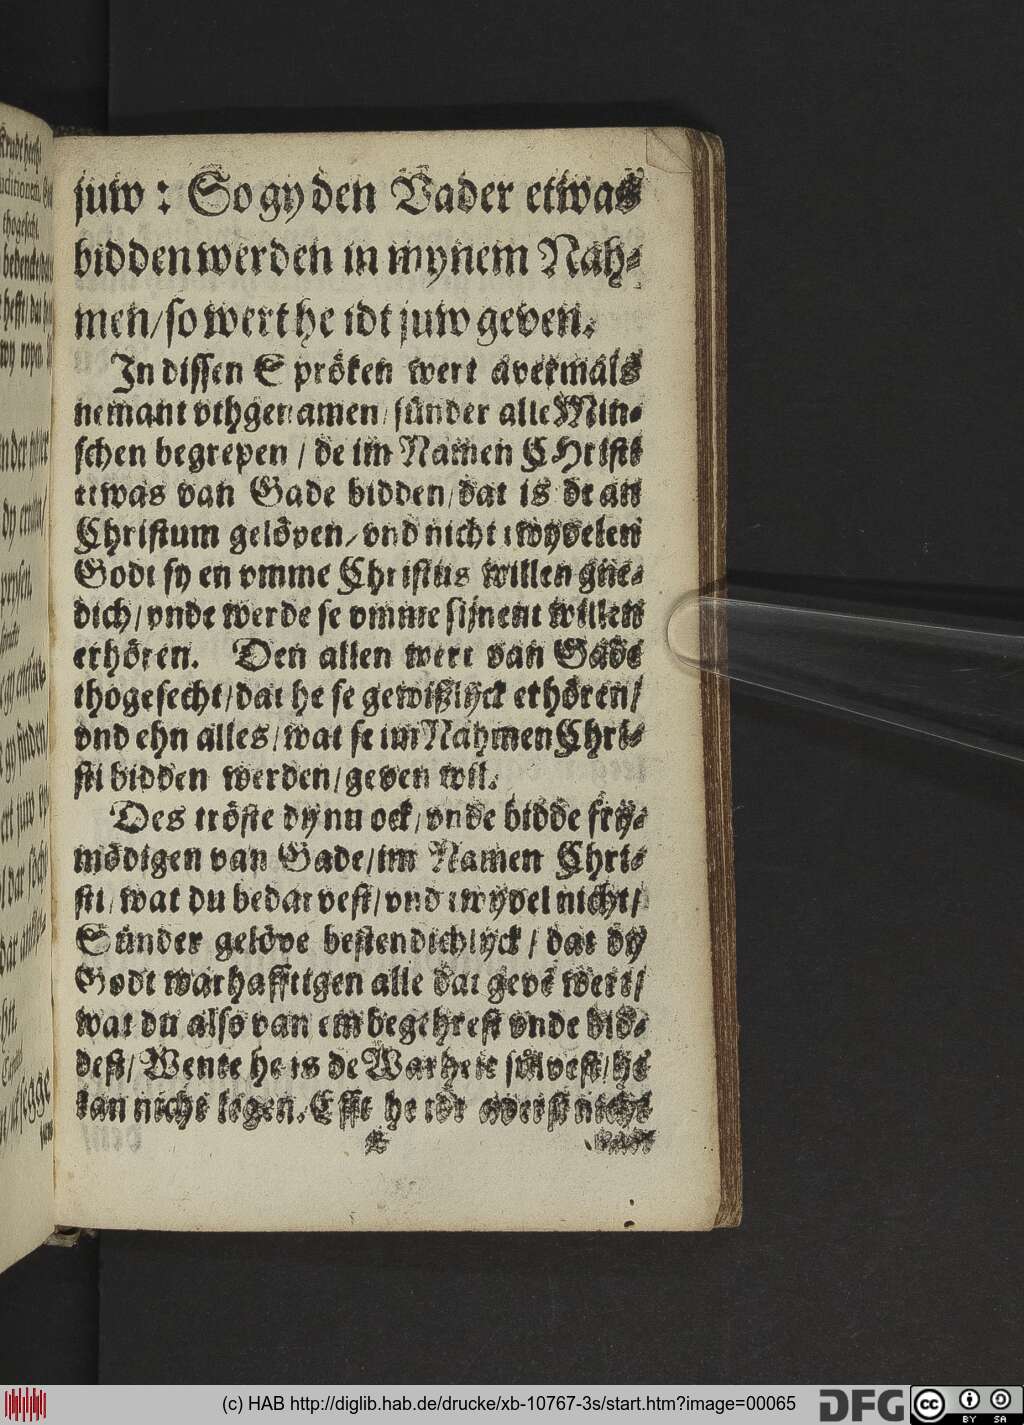 juw : So gy den Vader etwas
bidden werden in mynem Nah⸗
men/ so wert he idt juw geven.
In dissen Spröken wert avermåls
nemant vthgenamen/ sünder alle Min⸗
schen begrepen / de im Namen CHristi
etwas van Gade bidden/ dat is de an
Christum gelöven/ vnd nicht twyvelen
Godt sy en vmme Christus willen gne⸗
dich/ vnde werde se vmme sijnent willen
erhören. Den allen wert van Gade
thogesecht/ dat he se gewißlyck erhören/
vnd ehn alles/ wat se im Nahmen Chri⸗
sti bidden werden/ geven wil.
Des tröste dy nu ock/ vnde bidde fry⸗
mödigen van Gade/ im Namen Chri⸗
sti/ wat du bedarvest/ vnd twyvel nicht/
Sünder gelöve bestendichlyck / dat dy
Godt warhafftigen alle dat gevē wert/
wat du also van em begehrest vnde bid⸗
dest/ Wente he is de Warheit sülvest/ he
kan nicht legen. Efft he idt överst nicht
E
(c) HAB http://diglib.hab.de/drucke/xb-10767-3s/start.htm?image=00065
DFG
cc
BY SA